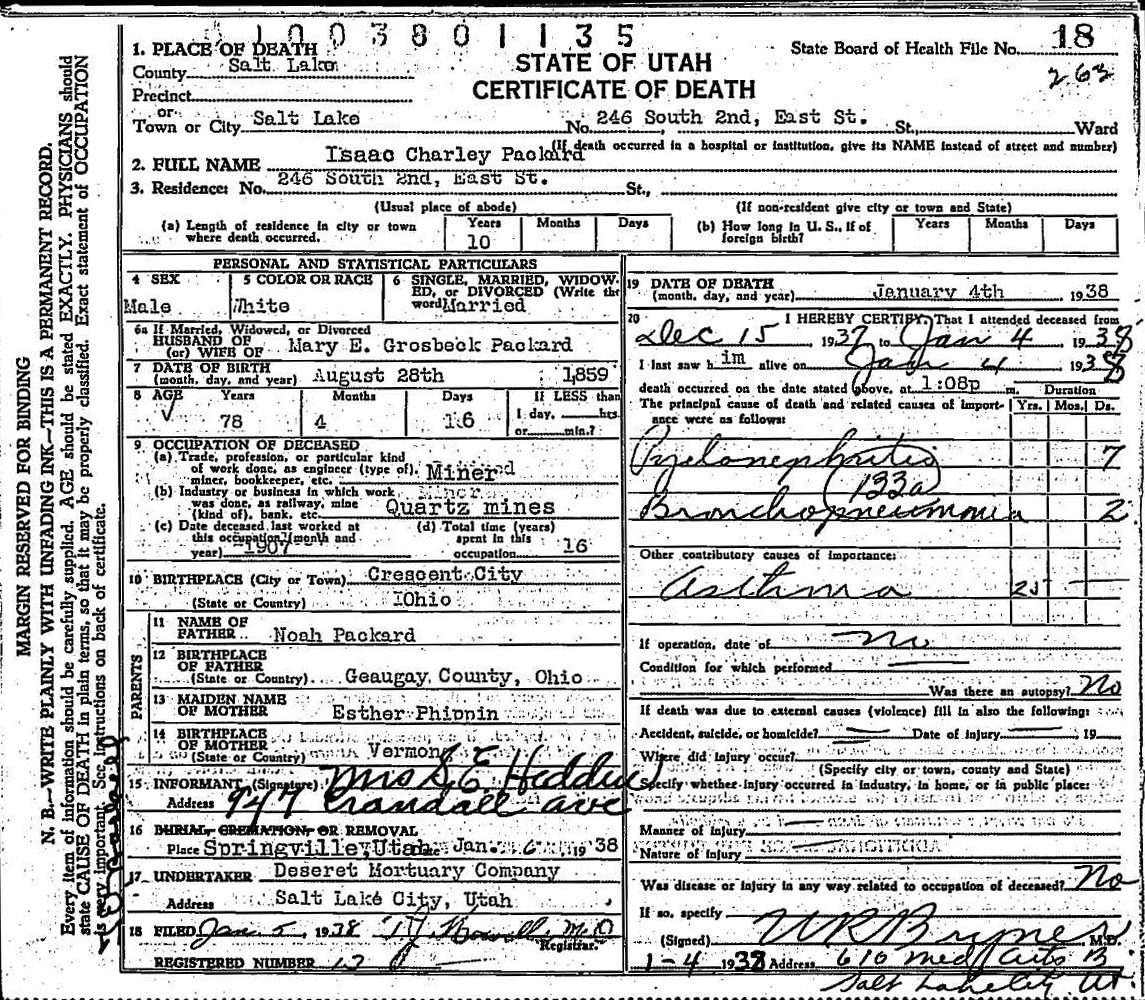 1003801135
1. PLACE OF DEATH
County Salt Lake
STATE OF UTAH
CERTIFICATE OF DEATH
State Board of Health File No. 18
263
Precinct
or
Town or City Salt Lake No. 246 South 2nd, East St. St., Ward
(If death occurred in a hospital or institution, give its NAME instead of street and number)
2. FULL NAME Isaac Charley Packard
3. Residence: No. 246 South 2nd, East St. St.,
(Usual place of abode) (If non-resident give city or town and State)
(a) Length of residence in city or town where death occurred. Years 10 Months Days
(b) How long in U. S., if of foreign birth? Years Months Days
PERSONAL AND STATISTICAL PARTICULARS
4 SEX Male
5 COLOR OR RACE White
6 SINGLE, MARRIED, WIDOWED, or DIVORCED (Write the word) Married
6a If Married, Widowed, or Divorced
HUSBAND OF
(or) WIFE OF Mary E. Grosbeck Packard
7 DATE OF BIRTH
(month, day, and year) August 28th 1859
8 AGE Years 78 Months 4 Days 16 If LESS than 1 day, hrs. or min.?
9 OCCUPATION OF DECEASED
(a) Trade, profession, or particular kind of work done, as engineer (type of), miner, bookkeeper, etc. Miner
(b) Industry or business in which work was done, as railway, mine (kind of), bank, etc. Quartz mines
(c) Date deceased last worked at this occupation (month and year) 1907
(d) Total time (years) spent in this occupation 16
10 BIRTHPLACE (City or Town) Crescent City
(State or Country) IOhio
PARENTS
11 NAME OF FATHER Noah Packard
12 BIRTHPLACE OF FATHER
(State or Country) Geaugay County, Ohio
13 MAIDEN NAME OF MOTHER Esther Phippin
14 BIRTHPLACE OF MOTHER
(State or Country) Vermont
15 INFORMANT (Signature) Mrs S. E.
Address 947 Crandall ave
16 BURIAL, CREMATION, OR REMOVAL
Place Springville, Utah Date Jan. 6 1938
17 UNDERTAKER Deseret Mortuary Company
Address Salt Lake City, Utah
18 FILED Jan 5 1938 M.D
Registrar.
REGISTERED NUMBER 13
19 DATE OF DEATH
(month, day, and year) January 4th 1938
20 I HEREBY CERTIFY, That I attended deceased from
Dec 15 1937 to Jan 4 1938
I last saw him alive on Jan 4 1938
death occurred on the date stated above, at 1:08p m. Duration
The principal cause of death and related causes of importance were as follows: Yrs. Mos. Ds.
Pyelonephritis 7
(133a)
Bronchopneumonia 2
Other contributory causes of importance:
Asthma 25 —
If operation, date of no
Condition for which performed
Was there an autopsy? No
If death was due to external causes (violence) fill in also the following:
Accident, suicide, or homicide? Date of injury 19
Where did injury occur?
(Specify city or town, county and State)
Specify whether injury occurred in industry, in home, or in public place:
Manner of injury
Nature of injury
Was disease or injury in any way related to occupation of deceased? No
If so, specify
(Signed) M.D.
1-4 1938 Address 610 Med Arts B
Salt Lake City, Ut.
MARGIN RESERVED FOR BINDING
N. B.—WRITE PLAINLY WITH UNFADING INK—THIS IS A PERMANENT RECORD.
Every item of information should be carefully supplied. AGE should be stated EXACTLY. PHYSICIANS should
state CAUSE OF DEATH in plain terms, so that it may be properly classified. Exact statement of OCCUPATION
is very important. See instructions on back of certificate.